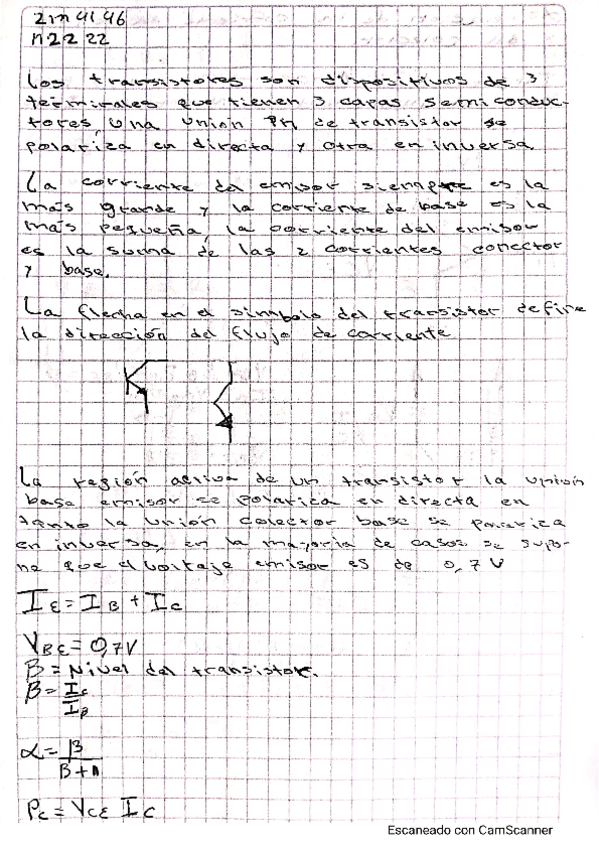 2m 41 46
n22 22
Los transistores son dispositivos de 3
terminales que tienen 3 capas semiconduc-
tores, una unión Pn de transistor se
polariza en directa y otra en inversa
La corriente del emisor siempre es la
más grande y la corriente de base es la
más pequeña, la corriente del emisor
es la suma de las 2 corrientes conector
y base.
La flecha en el simbolo del transistor define
la dirección del flujo de corriente
La región activa de un transistor la unión
base emisor se polarica en directa en
tanto la unión colector base se polariza
en inversa, en la mayoria de casos se supo-
ne que el voltaje emisor es de 0,7 V
IE = IB + IC
VBE = 0,7V
B = Nivel del transistor.
B = IC
IB
α = B
B+1
PC = VCE IC
Escaneado con CamScanner